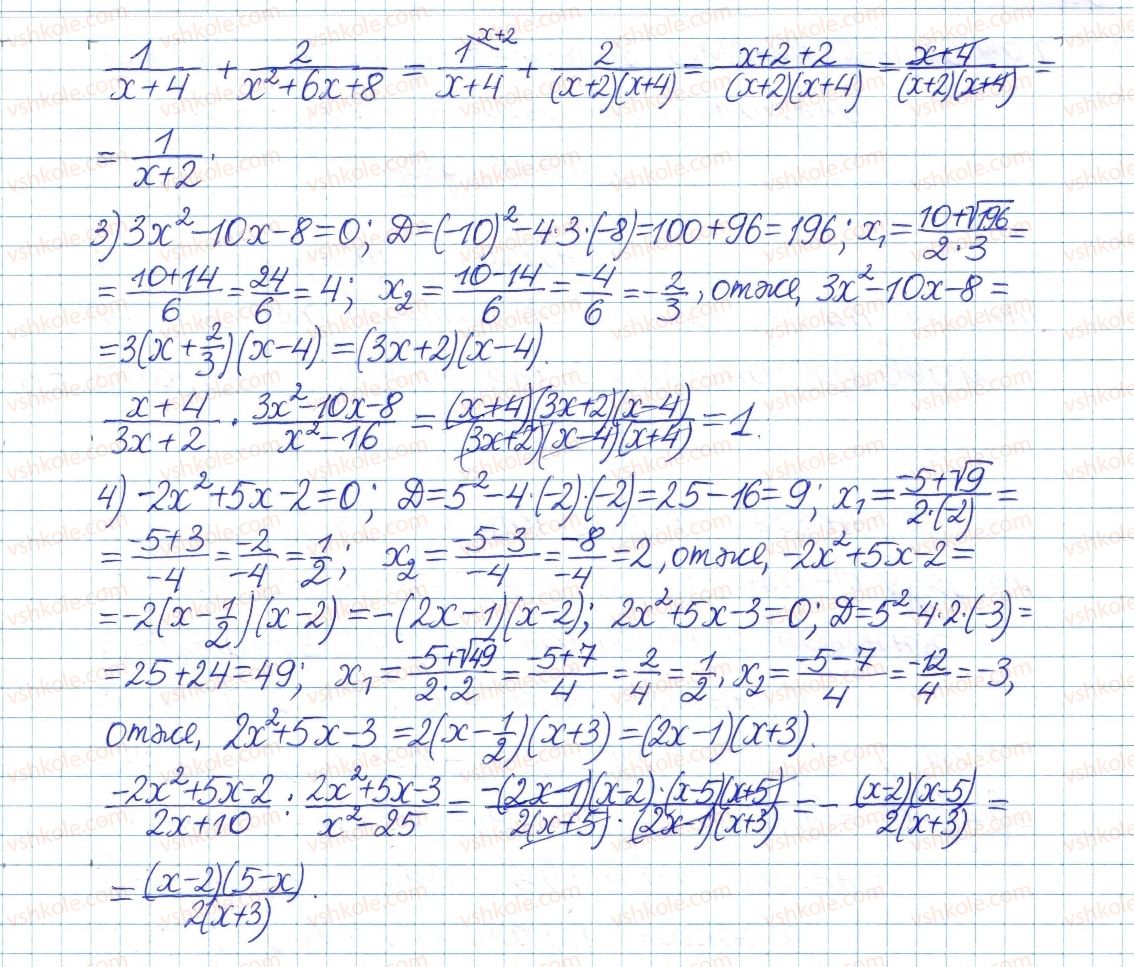 1/(x+4) + 2/(x²+6x+8) = 1^(x+2)/(x+4) + 2/((x+2)(x+4)) = (x+2+2)/((x+2)(x+4)) = (x+4)/((x+2)(x+4)) =
= 1/(x+2).
3) 3x²-10x-8=0; D=(-10)²-4·3·(-8)=100+96=196; x₁=(10+√196)/(2·3)=
=(10+14)/6=24/6=4; x₂=(10-14)/6=-4/6=-2/3, отже, 3x²-10x-8=
=3(x+2/3)(x-4)=(3x+2)(x-4).
(x+4)/(3x+2) · (3x²-10x-8)/(x²-16) = ((x+4)(3x+2)(x-4))/((3x+2)(x-4)(x+4)) = 1.
4) -2x²+5x-2=0; D=5²-4·(-2)·(-2)=25-16=9; x₁=(-5+√9)/(2·(-2))=
=(-5+3)/(-4)=(-2)/(-4)=1/2; x₂=(-5-3)/(-4)=(-8)/(-4)=2, отже, -2x²+5x-2=
=-2(x-1/2)(x-2)=-(2x-1)(x-2); 2x²+5x-3=0; D=5²-4·2·(-3)=
=25+24=49; x₁=(-5+√49)/(2·2)=(-5+7)/4=2/4=1/2, x₂=(-5-7)/4=-12/4=-3,
отже, 2x²+5x-3=2(x-1/2)(x+3)=(2x-1)(x+3).
(-2x²+5x-2)/(2x+10) : (2x²+5x-3)/(x²-25) = (-(2x-1)(x-2)·(x-5)(x+5))/(2(x+5)·(2x-1)(x+3)) = -((x-2)(x-5))/(2(x+3)) =
= ((x-2)(5-x))/(2(x+3)).
vshkole.com